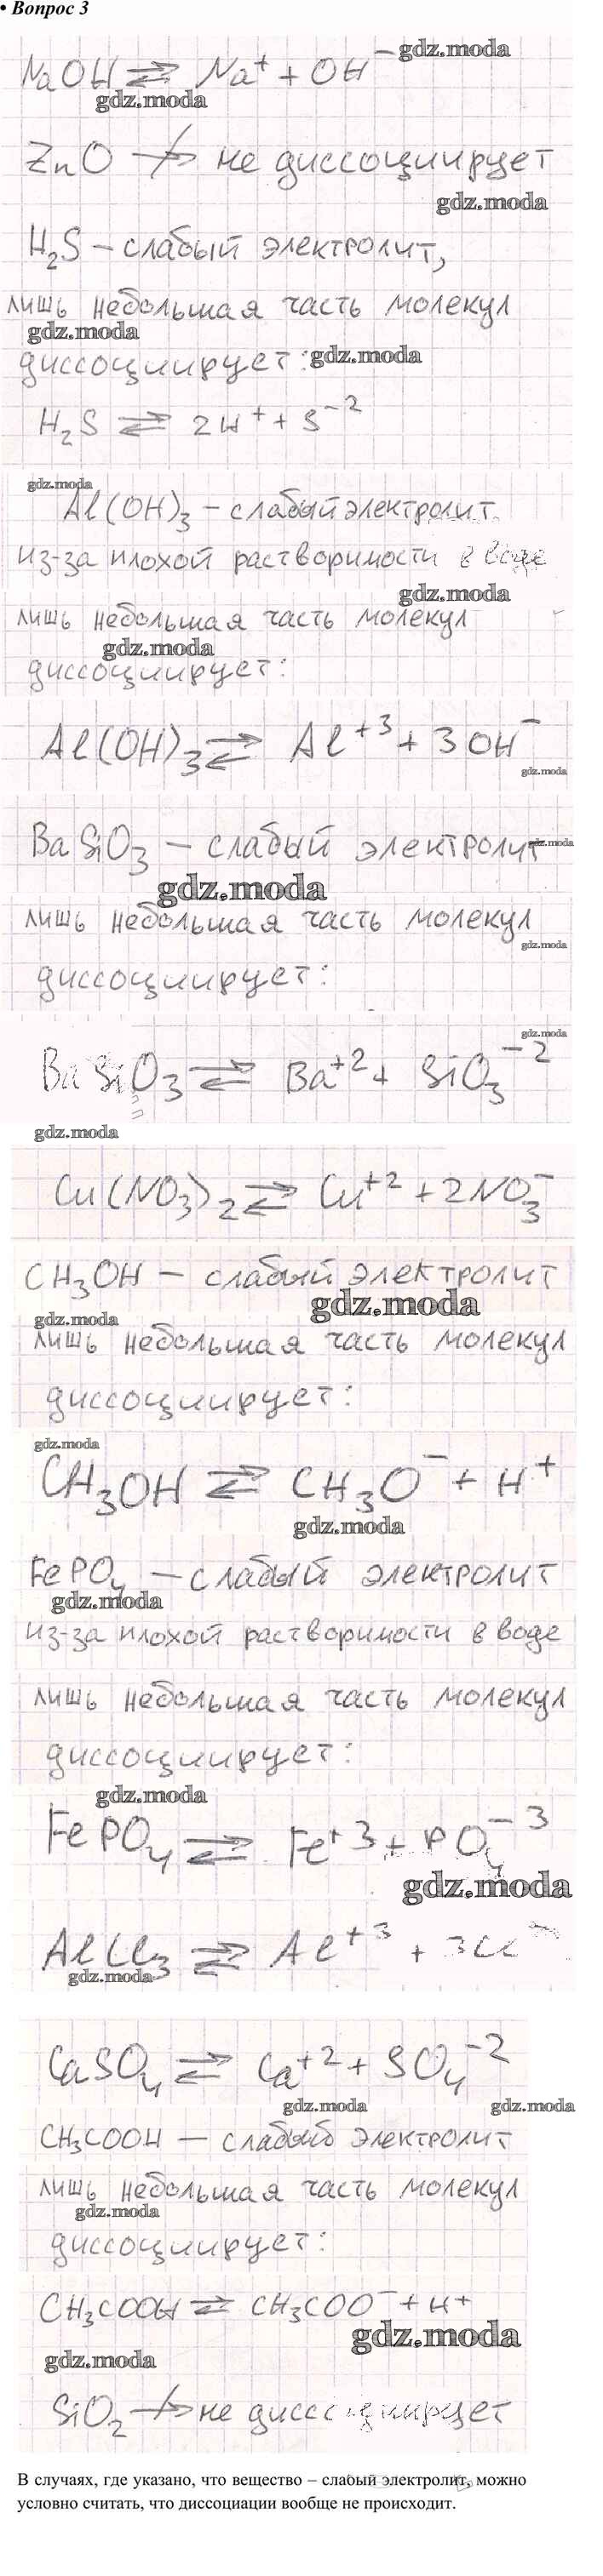 • Вопрос 3
NaOH ⇄ Na⁺ + OH⁻ gdz.moda
gdz.moda
ZnO ↛ не диссоциирует
gdz.moda
H₂S – слабый электролит,
лишь небольшая часть молекул
gdz.moda
диссоциирует: gdz.moda
H₂S ⇄ 2H⁺ + S⁻²
gdz.moda
Al(OH)₃ – слабый электролит
из-за плохой растворимости в воде
gdz.moda
лишь небольшая часть молекул
gdz.moda
диссоциирует:
Al(OH)₃ ⇄ Al⁺³ + 3OH⁻
gdz.moda
BaSiO₃ – слабый электролит gdz.moda
gdz.moda
лишь небольшая часть молекул
gdz.moda
диссоциирует:
gdz.moda
BaSiO₃ ⇄ Ba⁺² + SiO₃⁻²
gdz.moda
Cu(NO₃)₂ ⇄ Cu⁺² + 2NO₃⁻
CH₃OH – слабый электролит
gdz.moda
gdz.moda
лишь небольшая часть молекул
диссоциирует:
gdz.moda
CH₃OH ⇄ CH₃O⁻ + H⁺
gdz.moda
FePO₄ – слабый электролит
gdz.moda
из-за плохой растворимости в воде
лишь небольшая часть молекул
диссоциирует:
gdz.moda
FePO₄ ⇄ Fe⁺³ + PO₄⁻³
gdz.moda
AlCl₃ ⇄ Al⁺³ + 3Cl⁻
gdz.moda
CaSO₄ ⇄ Ca⁺² + SO₄⁻²
gdz.moda gdz.moda
CH₃COOH – слабый электролит
лишь небольшая часть молекул
gdz.moda
диссоциирует:
CH₃COOH ⇄ CH₃COO⁻ + H⁺
gdz.moda
gdz.moda
SiO₂ ↛ не диссоциирует
В случаях, где указано, что вещество – слабый электролит, можно
условно считать, что диссоциации вообще не происходит.